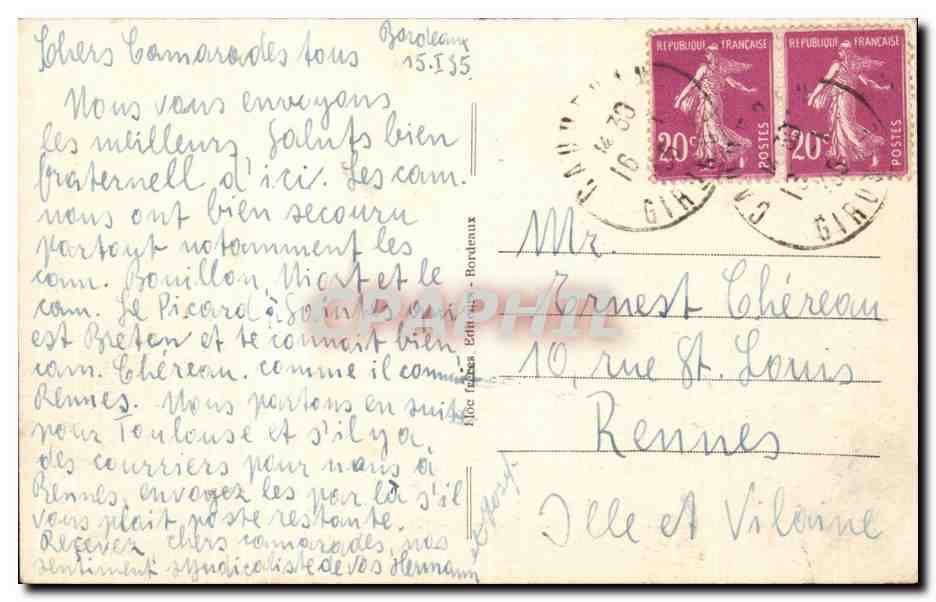 Bordeaux
15.I 35
Chers Camarades tous
Nous vous envoyons
les meilleurs Saluts bien
fraternell d'ici. Les cam.
nous ont bien secouru
partout notamment les
cam. Bouillon, Niort et le
cam. Le Picard à Saintes qui
est Breton et te connait bien
cam. Chéreau. comme il
Rennes. Nous partons en suite
pour Toulouse et s'il y a
des courriers pour nous à
Rennes, envoyez les par là s'il
vous plait, poste restante.
Reçevez chers camarades, nos
sentiment syndicaliste de vos Hermann
Bloc frères, Editeurs - Bordeaux
REPUBLIQUE FRANÇAISE
20c POSTES
REPUBLIQUE FRANÇAISE
20c POSTES
Mr.
Ernest Chéreau
10, rue St. Louis
Rennes
Ille et Vilaine
CPAPHIL